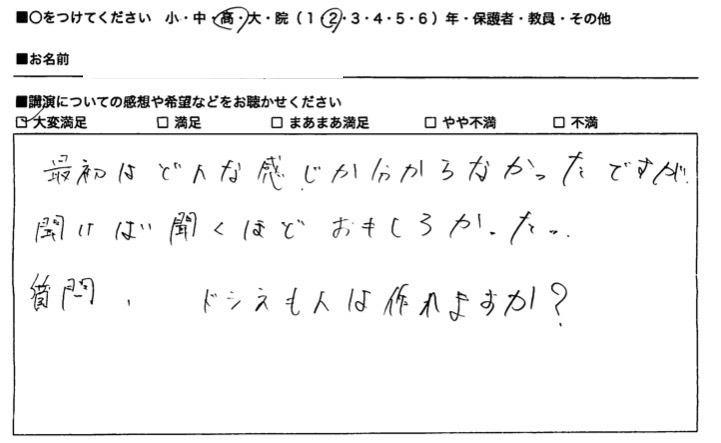 ■○をつけてください 小・中・高・大・院（1・2・3・4・5・6）年・保護者・教員・その他
■お名前
■講演についての感想や希望などをお聴かせください
☑ 大変満足 □ 満足 □ まあまあ満足 □ やや不満 □ 不満
最初はどんな感じか分からなかったですが、
聞けば聞くほどおもしろかった。
質問、ドラえもんは作れますか？